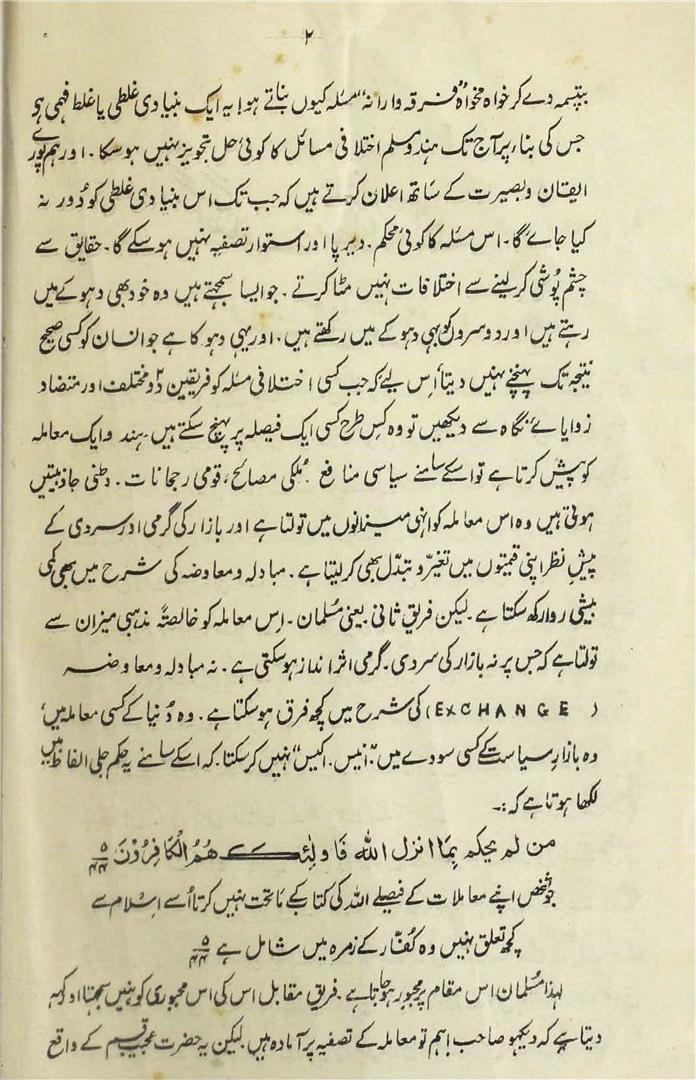 ۲
بپتسمہ دے کر خواہ مخواہ "فرقہ وارانہ" مسئلہ کیوں بناتے ہو! یہ ایک بنیادی غلطی یا غلط فہمی ہو
جس کی بناء پر آج تک ہندو مسلم اختلافی مسائل کا کوئی حل تجویز نہیں ہو سکا۔ اور ہم پورے
ایقان و بصیرت کے ساتھ اعلان کرتے ہیں کہ جب تک اس بنیادی غلطی کو دُور نہ
کیا جائے گا۔ اس مسئلہ کا کوئی محکم۔ دیرپا اور استوار تصفیہ نہیں ہو سکے گا۔ حقایق سے
چشم پوشی کر لینے سے اختلافات نہیں مٹا کرتے۔ جو ایسا سمجہتے ہیں وہ خود بھی دہوکے میں
رہتے ہیں اور دوسروں کو بہی دہوکے میں رکھتے ہیں۔ اور یہی دہوکا ہے جو انسان کو کسی صحیح
نتیجہ تک پہنچنے نہیں دیتا اِس لیے کہ جب کسی اختلافی مسئلہ کو فریقین دو مختلف اور متضاد
زوایائے نگاہ سے دیکھیں تو وہ کِس طرح کسی ایک فیصلہ پر پہنچ سکتے ہیں۔ ہندو ایک معاملہ
کو پیش کرتا ہے تو اسکے سامنے سیاسی منافع۔ مُلکی مصالح، قومی رجحانات۔ وطنی جاذبیتیں
ہوتی ہیں وہ اس معاملہ کو انہی میزانوں میں تولتا ہے اور بازار کی گرمی اور سردی کے
پیشِ نظر اپنی قیمتوں میں تغیّر و تبدّل بھی کر لیتا ہے۔ مبادلہ و معاوضہ کی شرح میں بھی کمی
بیشی روا رکھ سکتا ہے۔ لیکن فریقِ ثانی یعنی مُسلمان۔ اِس معاملہ کو خالصتہً مذہبی میزان سے
تولتا ہے کہ جس پر نہ بازار کی سردی۔ گرمی اثر انداز ہو سکتی ہے۔ نہ مبادلہ و معاوضہ
(EXCHANGE) کی شرح میں کچھ فرق ہو سکتا ہے۔ وہ دُنیا کے کسی معاملہ میں،
وہ بازارِ سیاست کے کسی سودے میں "انیس۔ اکیس" نہیں کر سکتا۔ کہ اسکے سامنے یہ حکم جلی الفاظ میں
لکھا ہوتا ہے کہ :۔
من لم یحکم بِمَا انزل اللہ فَاولٰئِک ھُمُ الْکَافِرُوْنَ ۵/۴۴
جو شخص اپنے معاملات کے فیصلے اللہ کی کتاب کے ماتحت نہیں کرتا اُسے اِسْلام سے
کچھ تعلق نہیں وہ کفّار کے زمرہ میں شامل ہے ۵/۴۴
لہذا مُسلمان اس مقام پر مجبور ہو جاتا ہے۔ فریقِ مقابل اس کی اس مجبوری کو نہیں سمجہتا اور کہہ
دیتا ہے کہ دیکہو صاحب! ہم تو معاملہ کے تصفیہ پر آمادہ ہیں لیکن یہ حضرت عجیب قسم کے واقع